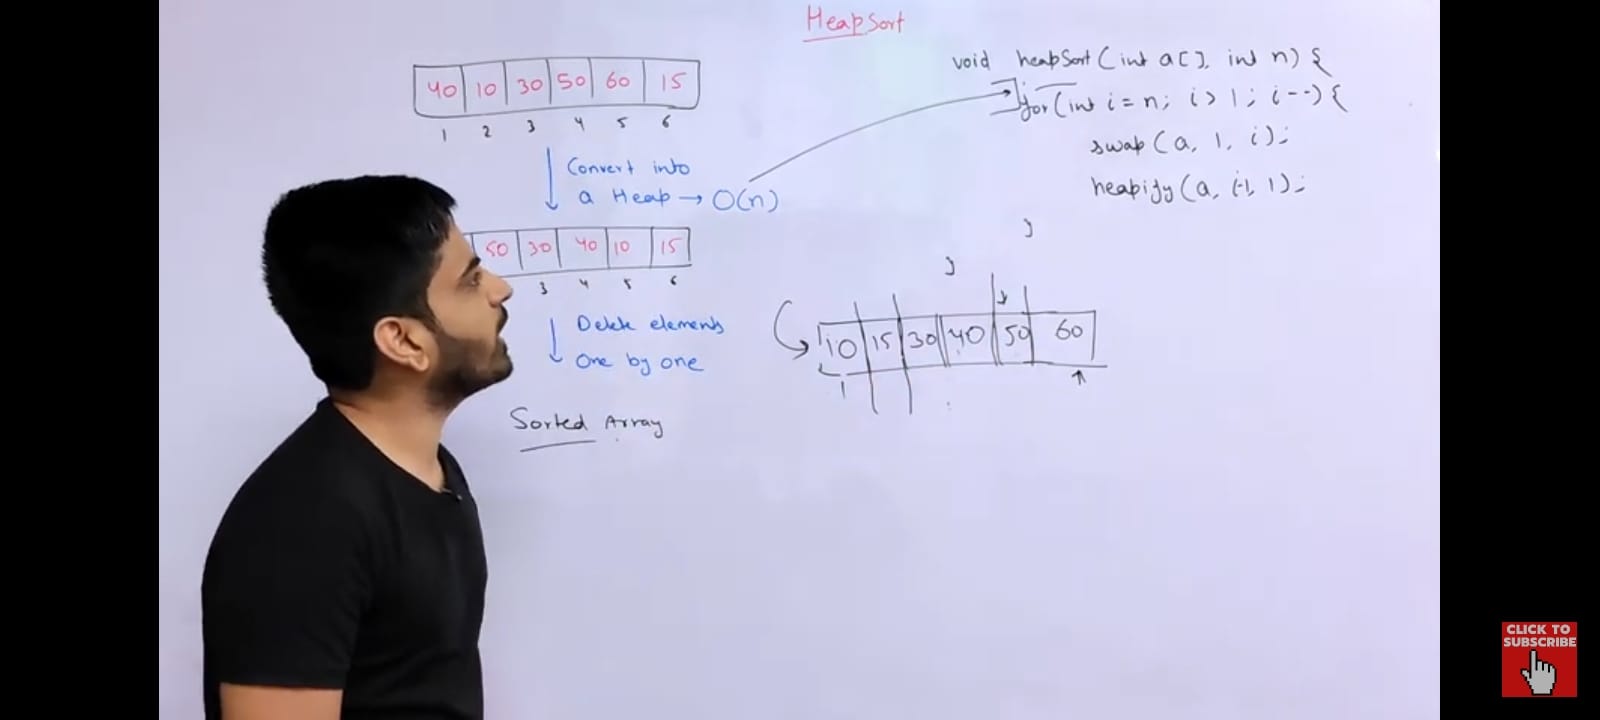 HeapSort
40 10 30 50 60 15
1 2 3 4 5 6
Convert into
a Heap → O(n)
50 30 40 10 15
3 4 5 6
Delete elements
One by one
Sorted Array
void heapSort(int a[], int n) {
for(int i = n; i > 1; i--) {
swap(a, 1, i);
heapify(a, i-1, 1);
}
}
10 15 30 40 50 60
1
CLICK TO
SUBSCRIBE